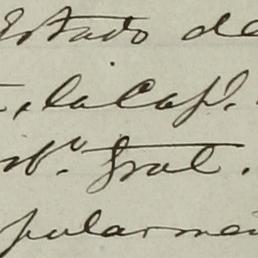 Estado de
la Cap.
Gral.
pularmen